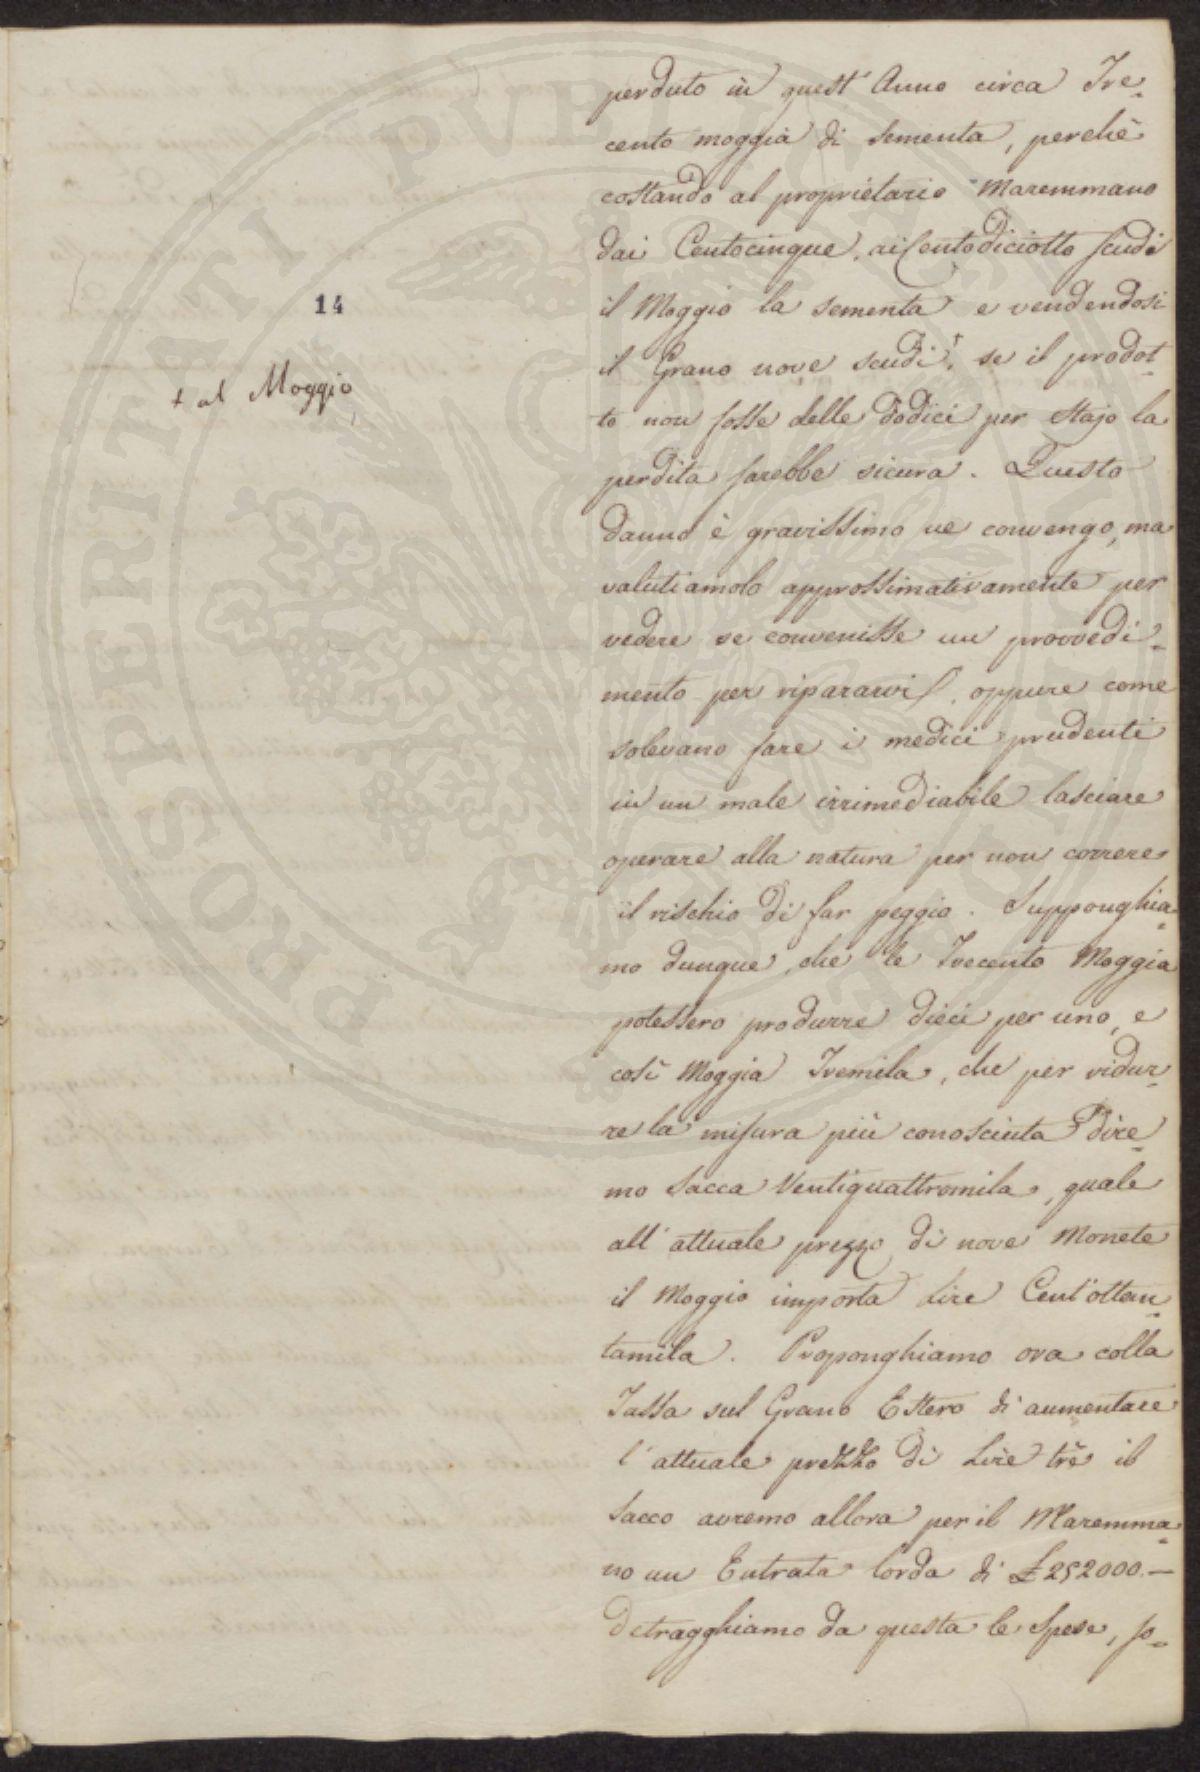 perduto in quest' Anno circa Tre-
cento moggia di sementa, perchè
costando al proprietario Maremmano
dai Centocinque, ai Centodiciotto scudi
14
il Moggio la sementa e vendendosi
il Grano nove scudi +, se il prodot-
+ al Moggio
to non fosse delle dodici per Stajo la
perdita sarebbe sicura. Questo
danno è gravissimo ne convengo, ma
valutiamolo approssimativamente per
vedere se convenisse un provvedi-
mento per ripararvi, oppure come
solevano fare i medici prudenti
in un male irrimediabile lasciare
operare alla natura per non correre
il rischio di far peggio. Supponghia-
mo dunque, che le Trecento Moggia
potessero produrre dieci per uno, e
così Moggia Tremila, che per ridur-
re la misura più conosciuta dire-
mo Sacca Ventiquattromila, quale
all' attuale prezzo di nove Monete
il Moggio importa Lire Cent'ottan-
tamila. Proponghiamo ora colla
Tassa sul Grano Estero di aumentare
l' attuale prezzo di Lire trè il
Sacco avremo allora per il Maremma-
no un Entrata lorda di £ 252000.—
Detragghiamo da questa le Spese, so-
PROSPERITATI PVBLICAE